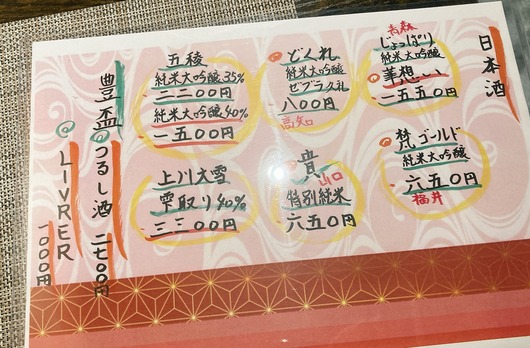 日本酒
青森
じょっぱり
純米大吟醸
華想い
一五五〇円
梵ゴールド
純米大吟醸
六五〇円
福井
どくれ
純米大吟醸
ゼブラク礼
八〇〇円
高知
貴
山口
特別純米
六五〇円
五稜
純米大吟醸35%
二二〇〇円
純米大吟醸40%
一五〇〇円
上川大雪
雫取り40%
三三〇〇円
豊盃
つるし酒 二七〇〇円
LIVRER
一〇〇〇円